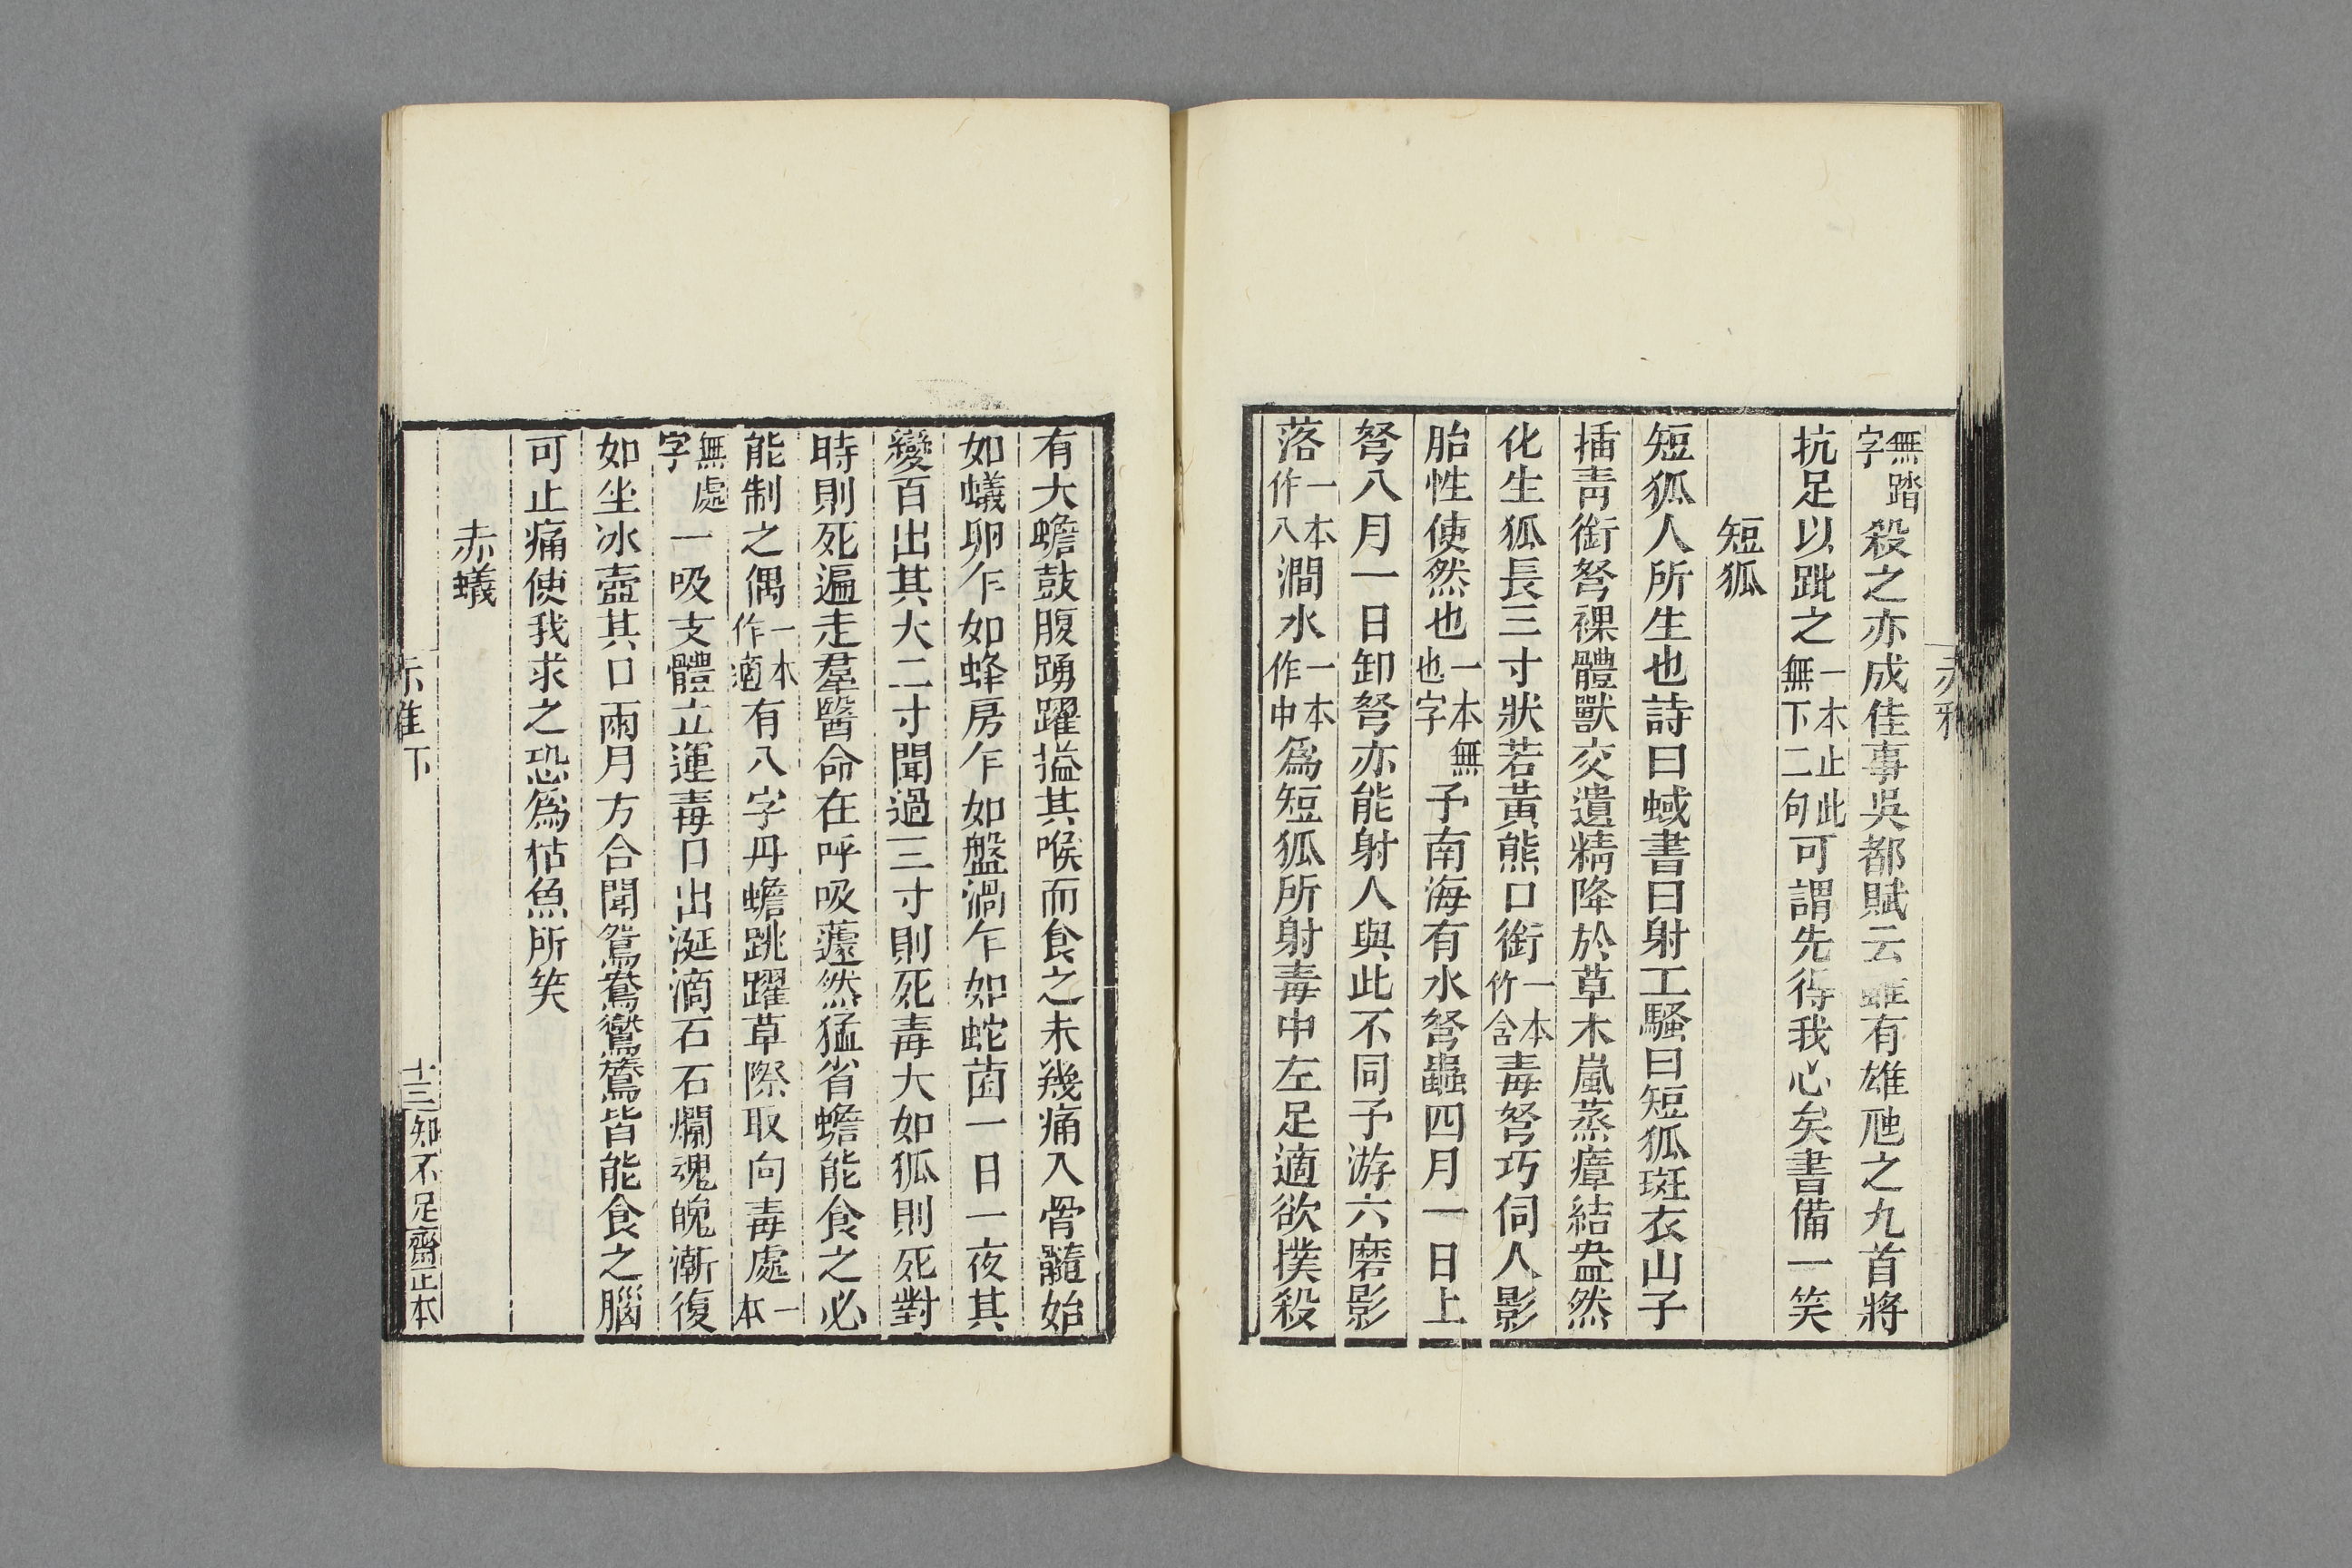 赤雅
無踏字殺之亦成佳事吳都賦云雖有雄虺之九首將
抗足以跐之一本止此無下二句可謂先得我心矣書備一笑
短狐
短狐人所生也詩曰蜮書曰射工騷曰短狐斑衣山子
插靑銜弩裸體獸交遺精降於草木嵐蒸瘴結盎然
化生狐長三寸狀若黃熊口銜一本作含毒弩巧伺人影
胎性使然也一本無也字予南海有水弩蟲四月一日上
弩八月一日卸弩亦能射人與此不同予游六磨影
落一本作八澗水一本作中爲短狐所射毒中左足適欲撲殺
有大蟾鼓腹踴躍搤其喉而食之未幾痛入骨髓始
如蟻卵乍如蜂房乍如盤渦乍如蛇菌一日一夜其
變百出其大二寸聞過三寸則死毒大如狐則死對
時則死遍走羣醫命在呼吸蘧然猛省蟾能食之必
能制之偶一本作適有八字丹蟾跳躍草際取向毒處一本
無處字一吸支體立運毒口出涎滴石石爛魂魄漸復
如坐冰壺其口兩月方合聞鴛鴦鸑鷟皆能食之腦
可止痛使我求之恐爲枯魚所笑
赤蟻
赤雅下
十三知不足齋正本